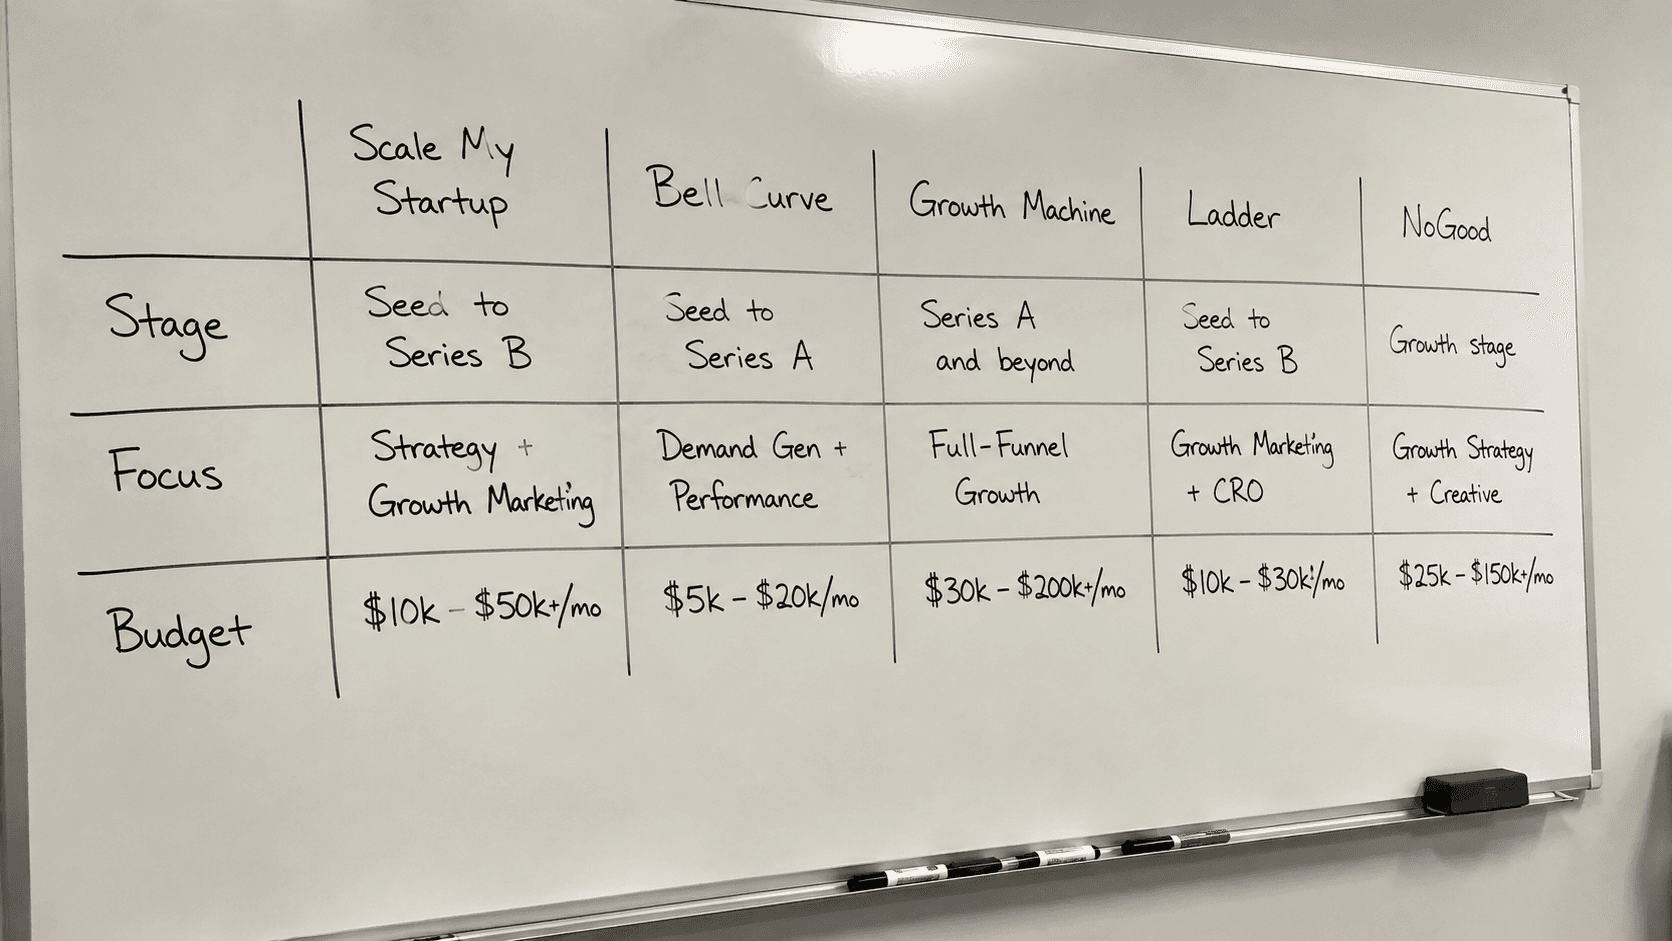 Scale My
Startup
Bell Curve
Growth Machine
Ladder
NoGood
Stage
Seed to
Series B
Seed to
Series A
Series A
and beyond
Seed to
Series B
Growth stage
Focus
Strategy +
Growth Marketing
Demand Gen +
Performance
Full-Funnel
Growth
Growth Marketing
+ CRO
Growth Strategy
+ Creative
Budget
$10k - $50k+/mo
$5k - $20k/mo
$30k - $200k+/mo
$10k - $30k+/mo
$25k - $150k+/mo